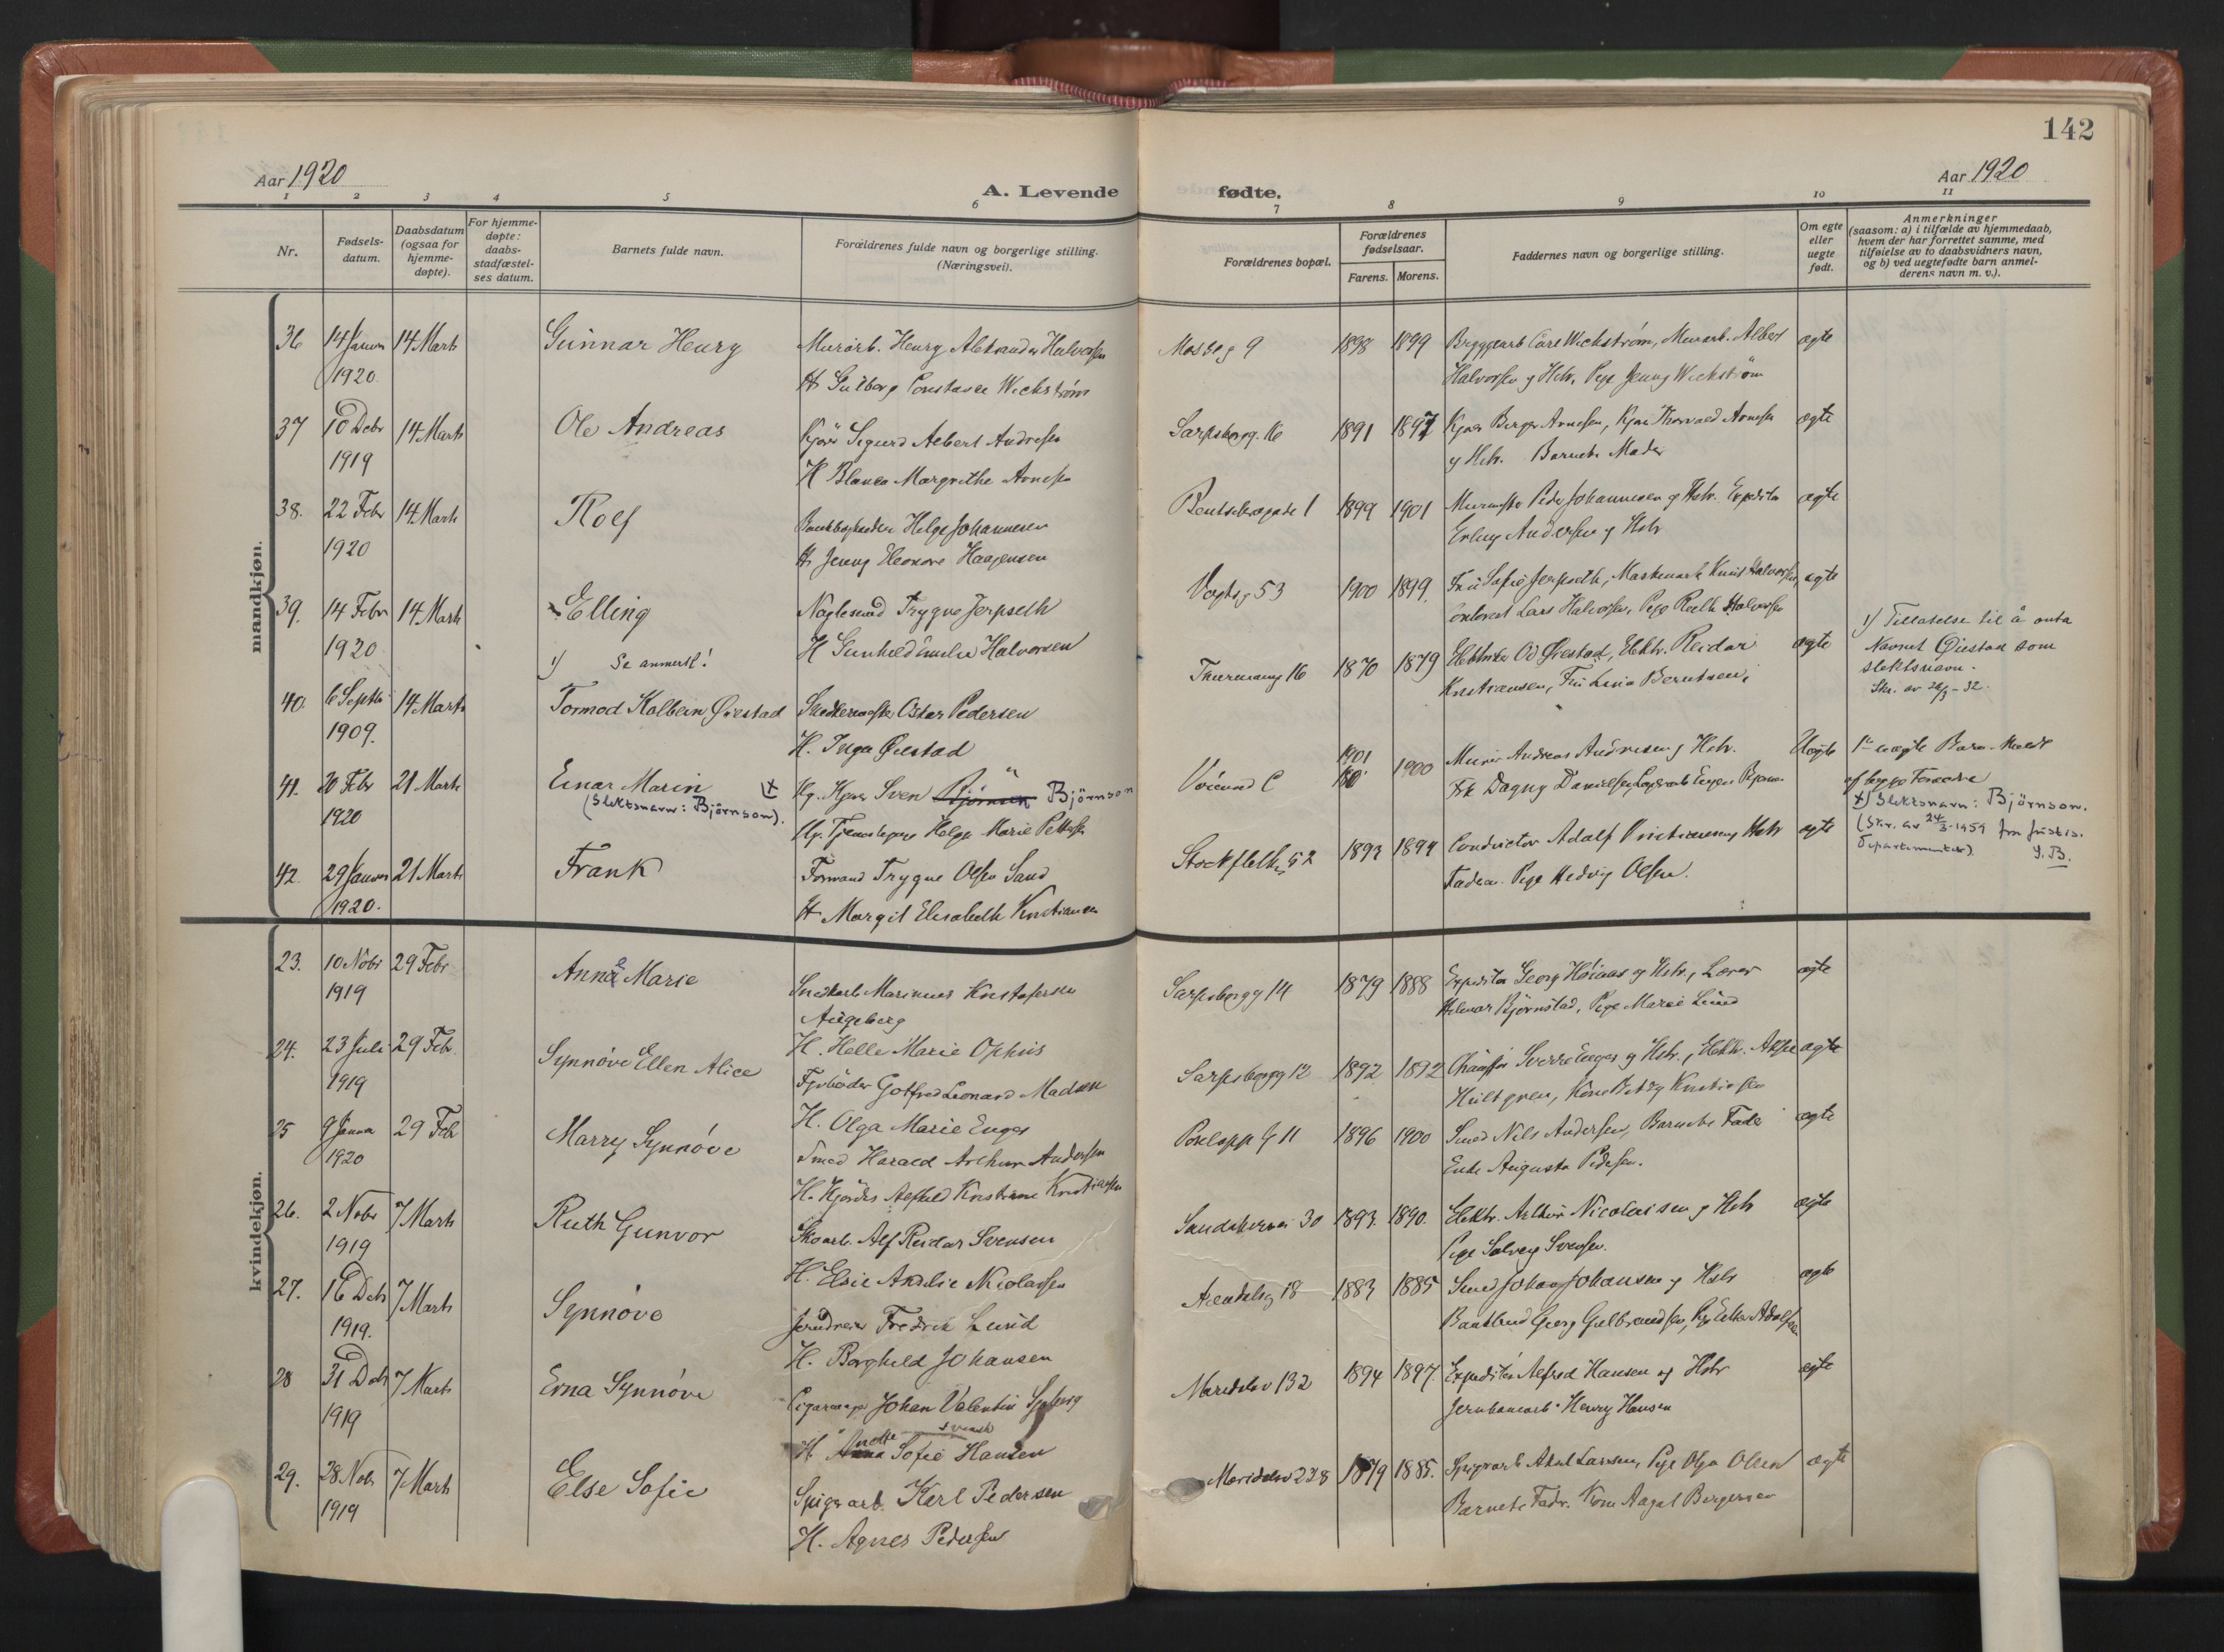 142
Aar 1920
A. Levende
fødte.
Aar 1920
1 2 3 4 5 6 7 8 9 10 11
Nr.
Fødsels-
datum.
Daabsdatum
(ogsaa for
hjemme-
døpte).
For hjemme-
døpte:
daabs-
stadfæstel-
ses datum.
Barnets fulde navn.
Forældrenes fulde navn og borgerlige stilling.
(Næringsvei).
Forældrenes bopæl.
Forældrenes
fødselsaar.
Farens. Morens.
Faddernes navn og borgerlige stilling.
Om egte
eller
uegte
født.
Anmerkninger
(saasom: a) i tilfælde av hjemmedaab,
hvem der har forrettet samme, med
tilføielse av to daabsvidners navn,
og b) ved uegtefødte barn anmel-
derens navn m. v.).
mandkjøn.
36. 14 Januar 14 Marts Gunnar Henry Murarb. Henry Aleksander Halvorsen
1920. H. Constance Wickstrøm
Mosseg 9 1898 1899 Bryggearb Carl Wickstrøm, Murarb. Albert ægte
Halvorsen og Hstr. Pige Jenny Wickstrøm
37 10 Debr 14 Marts Ole Andreas Sigurd Albert Andresen
1919 H Blanca Margrethe Arnesen
Sarpsborgg. 16 1891 1897 Kjører Birger Arnesen, Kjører Thorvald Arnesen ægte
og Hstr. Barnets Moder
38. 22 Febr 14 Marts Rolf Helge Johannesen
1920 H Jenny Eleonore Haagensen
Bentsebrogade 1 1899 1901 Murmester Peder Johannesen og Hstr. Expeditør ægte
Erling Andersen og Hstr
39. 14 Febr 14 Marts Elling Naglesmed Trygve Jerpseth
1920 H Gunhild Emilie Halvorsen
Vogtsg 53 1900 1899. Fru Sofie Jerpseth, Maskinarb Knut Halvorsen, ægte
Lars Halvorsen, Pige Halvorsen
1) Se anmerk!
40. 6 Septbr 14 Marts Tormod Kolbein Øiestad Snedkermester Oskar Pedersen
1909. H. Inga Øiestad
Thurmannsg 16 1870 1879 Od Øiestad, Elektr. Reidar ægte
Kristiansen, Fru Lina Berntsen
1) Tillatelse til å anta
Navnet Øiestad som
slektsnavn.
Skr. av 26/3-32.
41. 20 Febr 21 Marts Einar Marin x Ug. Kjører Sven Björnsen Björnson
1920 (Slektsnavn: Björnson). Ug. Helga Marie Pettersen
1901 1900 Murer Andreas Andresen og Hstr. Uægte
Frk Dagny Danielsen,
1ste uægte Barn. Meldt
af begge Forældre
x) Slektsnavn: Björnson.
(Skr. av 24/3-1959 fra Justis.
Departementet) S.B.
42. 29 Januar 21 Marts Frank Formand Trygve Olsen Sand
1920. H Margit Elisabeth Kristiansen
Stockflethsg 52 1893 1894 Conductør Adolf Kristiansen og Hstr ægte
Faderen. Pige Hedvig Olsen.
kvindekjøn.
23. 10 Nobr 29 Febr Anne Marie Snedkerb Marinus Kristofersen
1919 Augeberg
H. Helle Marie Ophus
Sarpsborgg 14 1879 1888 Expeditør Georg Høiaas og Hstr., Lærer ægte
Helmar Bjørnstad, Pige Marie Lund
24. 23 Juli 29 Febr. Synnöve Ellen Alice
1919 Fyrbøder Gotfred Leonard Madsen
H. Olga Marie Enger
Sarpsborgg 12 1892 1892 Chauffør Sverre Enger og Hstr., Elektr. ægte
Hultgren, Kone Betzy Kristiansen
25 9 Januar 29 Feb Marry Synnöve Smed Harald Arthur Andersen
1920 H. Hjördis Alfhild Kristine Kristiansen
11 1896 1900 Smed Nils Andersen, Barnets Fader ægte
Enke Augusta Pedersen.
26. 2 Nobr 7 Marts Ruth Gunvor Skoarb. Alf Reidar Svensen
1919 H. Elsie Amalie Nicolaisen
Sandakervei 30 1893. 1890. Elektr. Arthur Nicolaisen og Hstr ægte
Pige Solveig Svensen.
27. 16 Debr 7 Marts Synnöve Jerndreier Fredrik Lund
1919. H. Borghild Johansen
Arendalsg 18 1883 1885 Smed Johan Johansen og Hstr ægte
Georg Gulbrandsen,
28 31 Debr 7 Marts Erna Synnöve Johan Valentin Sjøberg
1919 svensk
H. Anna Sofie Hansen
Maridalsv 132 1894 1897. Expeditør Alfred Hansen og Hstr ægte
Henry Hansen
29. 28 Nobr 7 Marts Else Sofie Spigerarb. Karl Pedersen
1919 H. Agnes Pedersen
Maridalsv 228 1879 1885. Spigerarb Aksel Larsen, Pige Olga Olsen ægte
Barnets Fader. Kone Aagot Bergersen